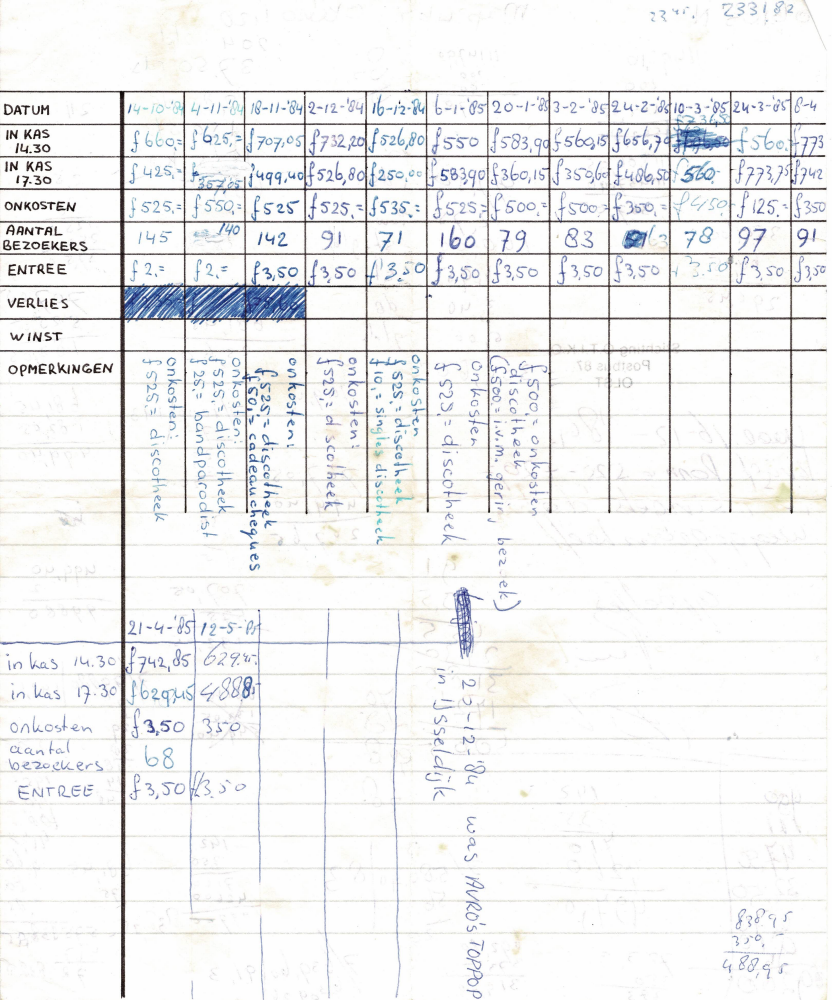 2345. 233182
DATUM 14-10-'84 4-11-'84 18-11-'84 2-12-'84 16-12-'84 6-1-'85 20-1-'85 3-2-'85 24-2-'85 10-3-'85 24-3-'85 8-4
IN KAS 14.30 f660,= f625,= f707,05 f732,20 f526,80 f550 f583,90 f560,15 f656,70 f560,- f773
IN KAS 17.30 f425,= f357,05 f499,40 f526,80 f250,00 f58390 f360,15 f350,60 f406,50 f560,- f773,75 f742
ONKOSTEN f525,= f550,= f525 f525,= f535,= f525,= f500,= f500,= f350,= f450,- f125,= f350
AANTAL BEZOEKERS 145 140 142 91 71 160 79 83 63 78 97 91
ENTREE f2,= f2,= f3,50 f3,50 f3,50 f3,50 f3,50 f3,50 f3,50 f3.50 f3,50 f3,50
VERLIES
WINST
OPMERKINGEN
onkosten:
f525,= discotheek
onkosten:
f525,= discotheek
f25,= bandparodist
onkosten:
f525,= discotheek
f50,= cadeaucheques
onkosten:
f525,= discotheek
onkosten
f525,= discotheek
f10,= singles discotheek
onkosten
f525,= discotheek
f500,= onkosten
discotheek
(f500,= i.v.m. gering bezoek)
Stichting O.T.I.K.O.
Postbus 67
OLST
21-4-'85 12-5-'85
in kas 14.30 f742,85 629.45
in kas 17.30 f629,45 488
onkosten f3,50 350
aantal bezoekers 68
ENTREE f3,50 f3.50
25-12-'84 was AVRO'S TOPPOP
in IJsseldijk
838.95
350,-
488,95